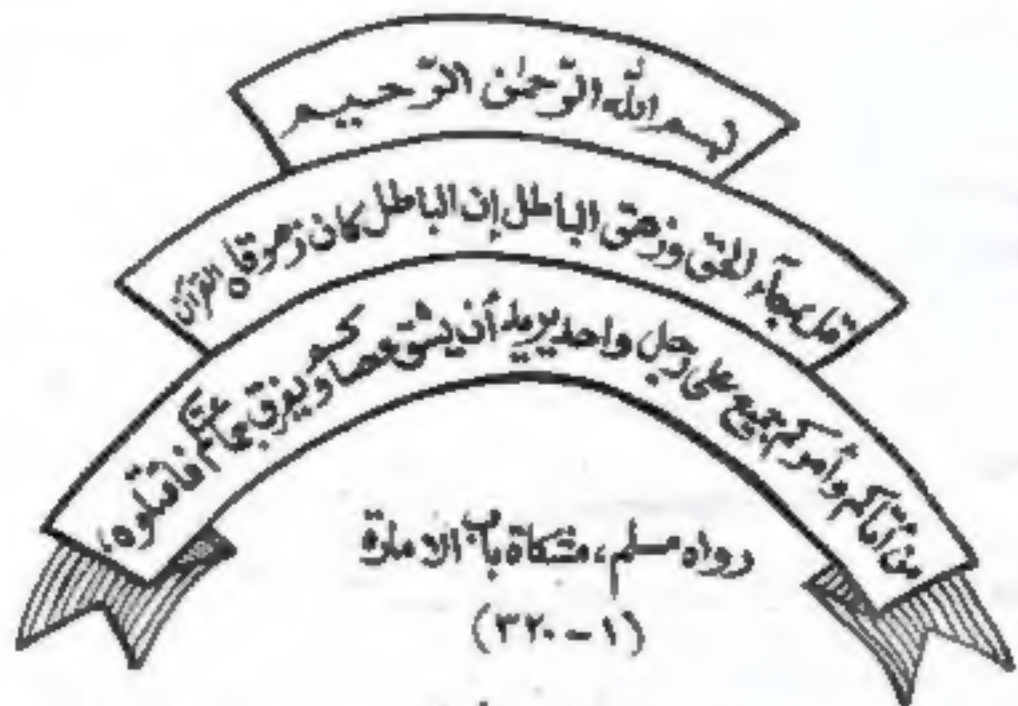 بسم الله الرّحمٰن الرّحيم
قل جآء الحق وزهق الباطل إن الباطل كان زهوقاه القرآن
من أتاكم وأمركم جميع على رجل واحد يريد أن يشق عصاكم ويفرق جماعتكم فاقتلوه،
رواه مسلم، مشكاة باب الامارة
(۱-۳۲۰)